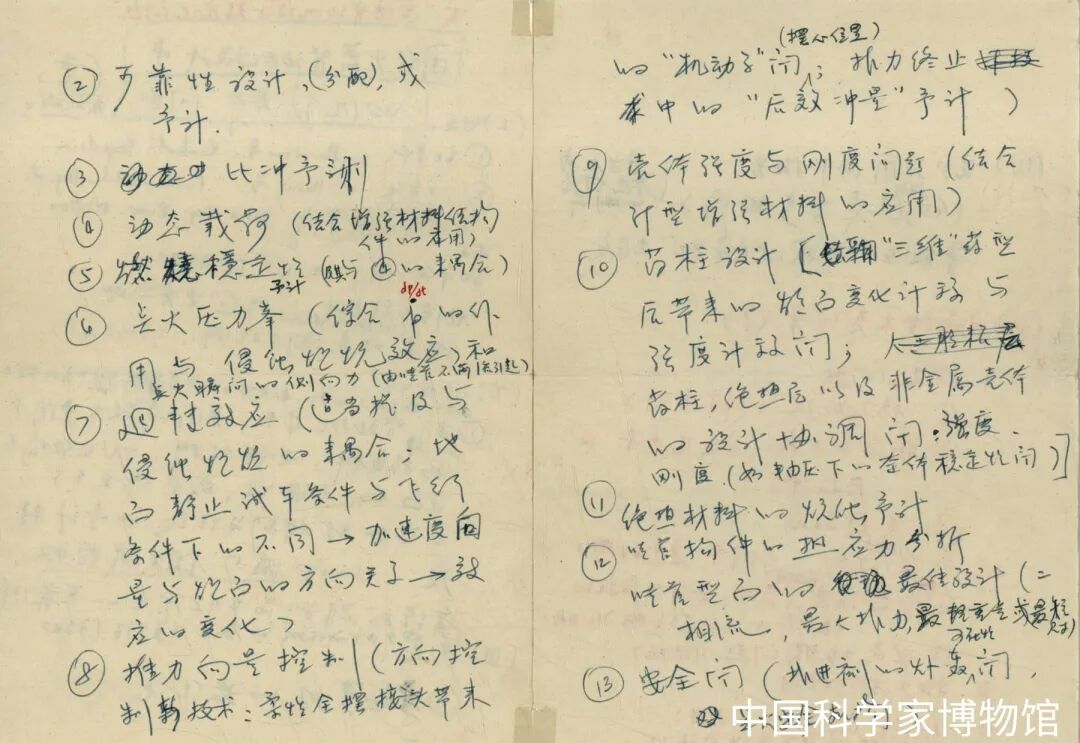 ② 可靠性设计、(分配)，或
予计.
③ 比冲予测
④ 动态载荷 (结合增强材料结构
件的应用)
⑤ 燃烧稳定性予计 (与④的耦合)
⑥ 点火压力峯 (综合 dp/dt 的作
用与侵蚀燃烧效应) 和
点火瞬间的侧向力 (由喷管不同步引起)
⑦ 过载效应 (适当提及与
侵蚀燃烧的耦合；地
面静止试车条件与飞行
条件下的不同→加速度向
量与燃面的方向关系→效
应的变化)
⑧ 推力向量控制 (方向控
制新技术：柔性全摆接头带来
(摆心位置)
的“机动矛”问；推力终止
中的“后效冲量”予计)
⑨ 壳体强度与刚度问题 (结合
计型增强材料的应用)
⑩ 药柱设计 [ “三维”药型
后带来的燃面变化计算与
强度计算问；
药柱，绝热层以及非金属壳体
的设计协调问：强度、
刚度 (如轴压下的壳体稳定性问)]
⑪ 绝热材料的烧蚀予计
⑫ 喷管构件的热应力分析
喷管型面的最佳设计 (二
相流，最大推力，最轻重量或最短尺寸)
可能性
⑬ 安全问 (推进剂的炸轰问，
中国科学家博物馆